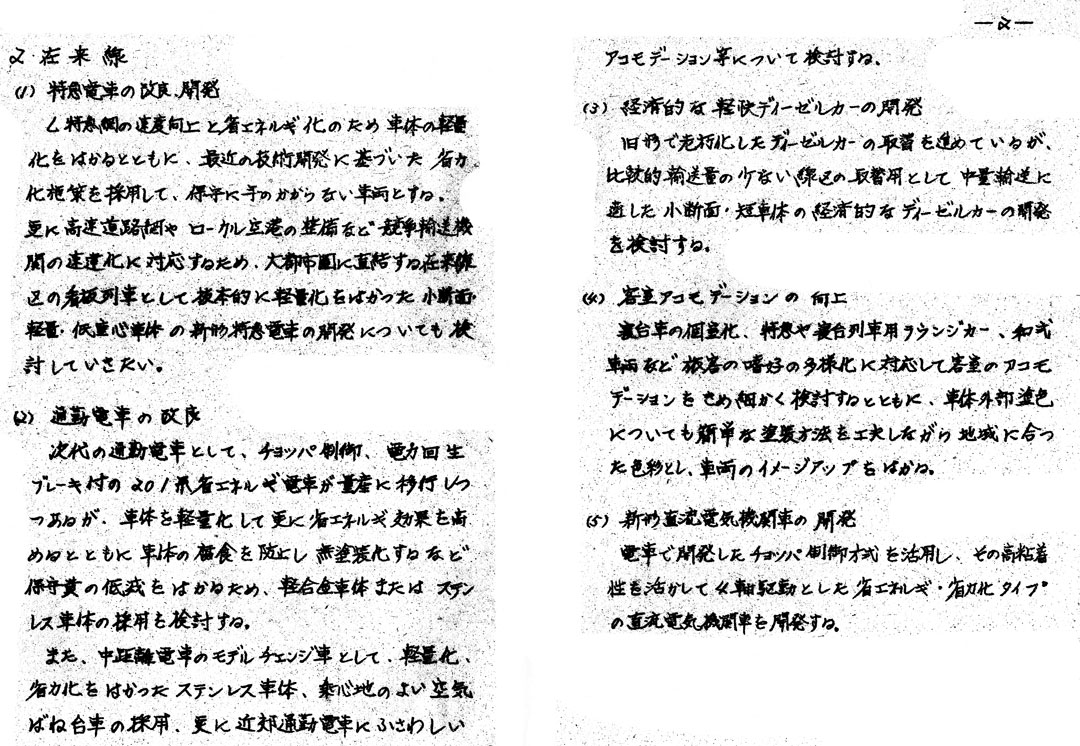 2. 在来線
(1) 特急電車の改良、開発
L特急網の速度向上と省エネルギ化のため車体の軽量
化をはかるとともに、最近の技術開発に基づいた省力
化施策を採用して、保守に手のかからない車両とする。
更に高速道路網やローカル空港の整備など競争輸送機
関の速達化に対応するため、大都市圏に直結する在来線
区の看板列車として抜本的に軽量化をはかった小断面・
軽量・低重心車体の新形特急電車の開発についても検
討していきたい。
(2) 通勤電車の改良
次代の通勤電車として、チョッパ制御、電力回生
ブレーキ付の201系省エネルギ電車が量産に移行しつ
つあるが、車体を軽量化して更に省エネルギ効果を高
めるとともに車体の腐食を防止し無塗装化するなど
保守費の低減をはかるため、軽合金車体またはステン
レス車体の採用を検討する。
また、中距離電車のモデルチェンジ車として、軽量化、
省力化をはかったステンレス車体、乗心地のよい空気
ばね台車の採用、更に近郊通勤電車にふさわしい
―2―
アコモデーション等について検討する。
(3) 経済的な軽快ディーゼルカーの開発
旧形で老朽化したディーゼルカーの取替を進めているが、
比較的輸送量の少ない線区の取替用として中量輸送に
適した小断面・短車体の経済的なディーゼルカーの開発
を検討する。
(4) 客室アコモデーションの向上
寝台車の個室化、特急や寝台列車用ラウンジカー、和式
車両など旅客の嗜好の多様化に対応して客室のアコモ
デーションをきめ細かく検討するとともに、車体外部塗色
についても簡単な塗装方法を工夫しながら地域に合っ
た色彩とし、車両のイメージアップをはかる。
(5) 新形直流電気機関車の開発
電車で開発したチョッパ制御方式を活用し、その高粘着
性を活かして4軸駆動とした省エネルギ・省力化タイプ
の直流電気機関車を開発する。